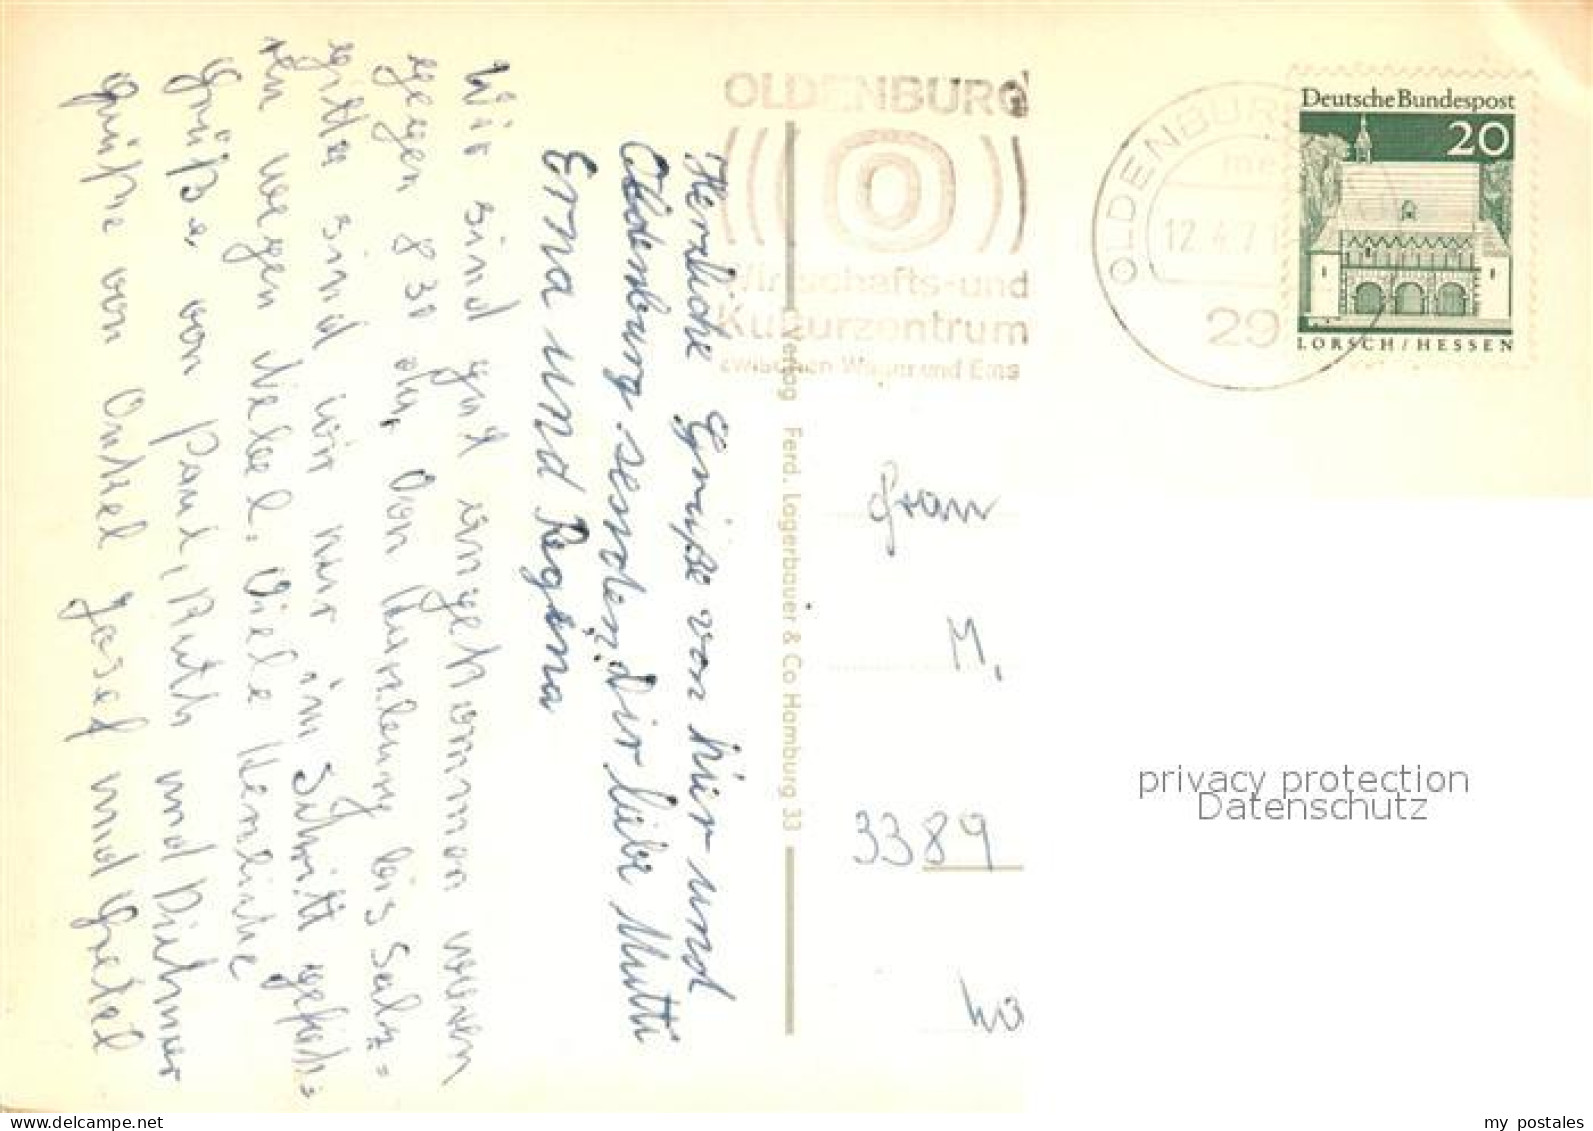 OLDENBURG
Wirtschafts-und
Kulturzentrum
zwischen Weser und Ems
OLDENBURG
12.4.7
29
Deutsche Bundespost
20
LORSCH/HESSEN
Herzliche Grüße von hier und
Oldenburg senden Dir liebe Mutti
Erna und Regina
Wir sind gut angekommen waren
gegen 8 30 da, von bis Salz=
gitter sind wir nur im Schritt gefah=
ren wegen Nebel. Viele Herzliche
Grüße von Paul, Ruth und Dietmar
Grüße von Onkel Josef und Gretel
Verlag Ferd. Lagerbauer & Co Hamburg 33
Frau
M.
3389
privacy protection
Datenschutz
my postales